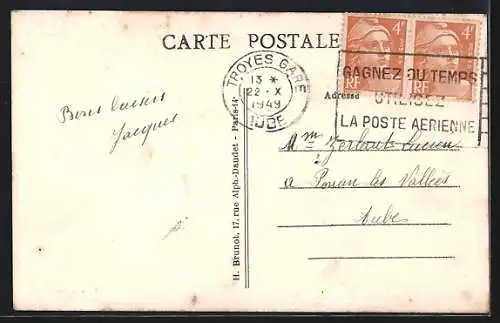 CARTE POSTALE
4F
4F
RF
RF
TROYES GARE
13 *
22 - X
1949
AUBE
GAGNEZ DU TEMPS
UTILISEZ
LA POSTE AERIENNE
Adresse
Bons baisers
Jacques
H. Brunot, 17, rue Alph-Daudet - Paris-14e
Mme
a les Vallées
Aube